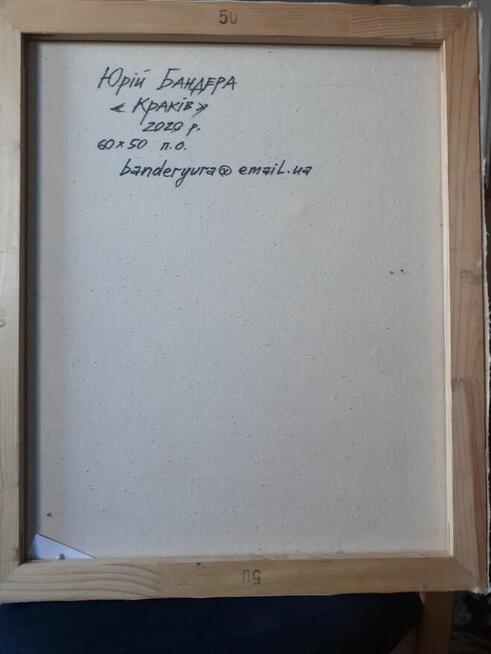 50
Юрій БАНДЕРА
«Краків»
2020 р.
60×50 п.о.
banderyura@email.ua
50